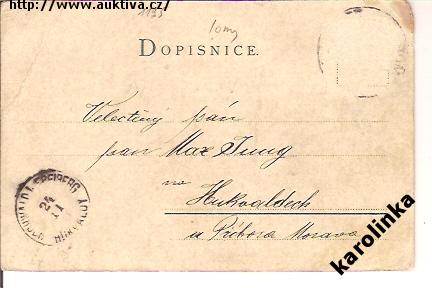 http://www.auktiva.cz/
1135
Lomy
DOPISNICE.
Velectěný pán
pan Max Jung
na
Hukvaldech
u Příbora Morava
24
11
karolinka